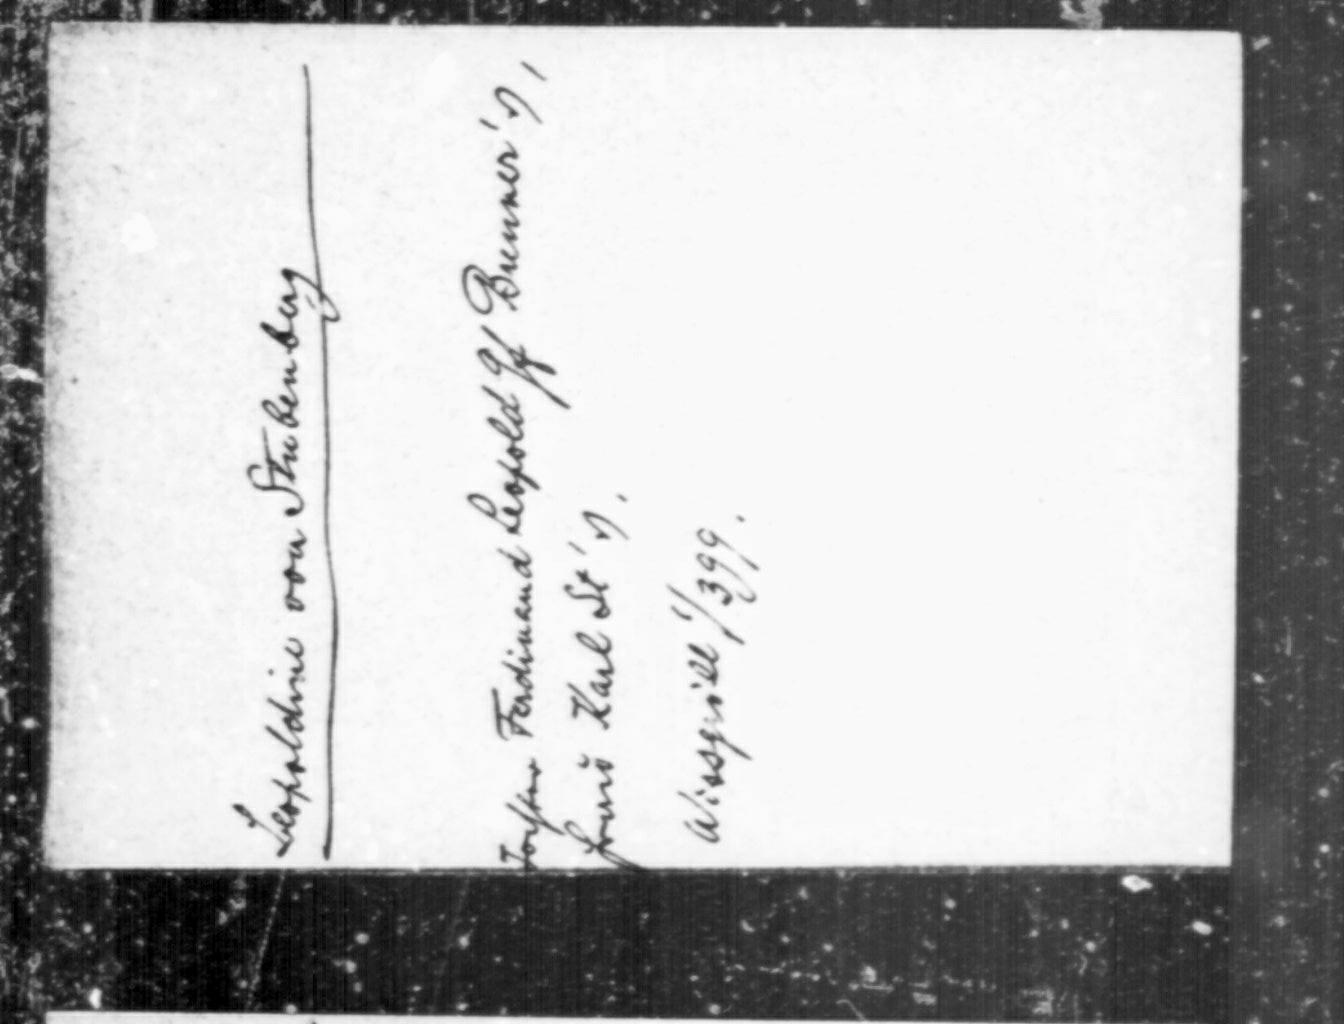 Leopoldine von Stubenberg
Tochter Ferdinand Leopold Gf Breuner's,
Karl St's.
Wissgrill 1/399.